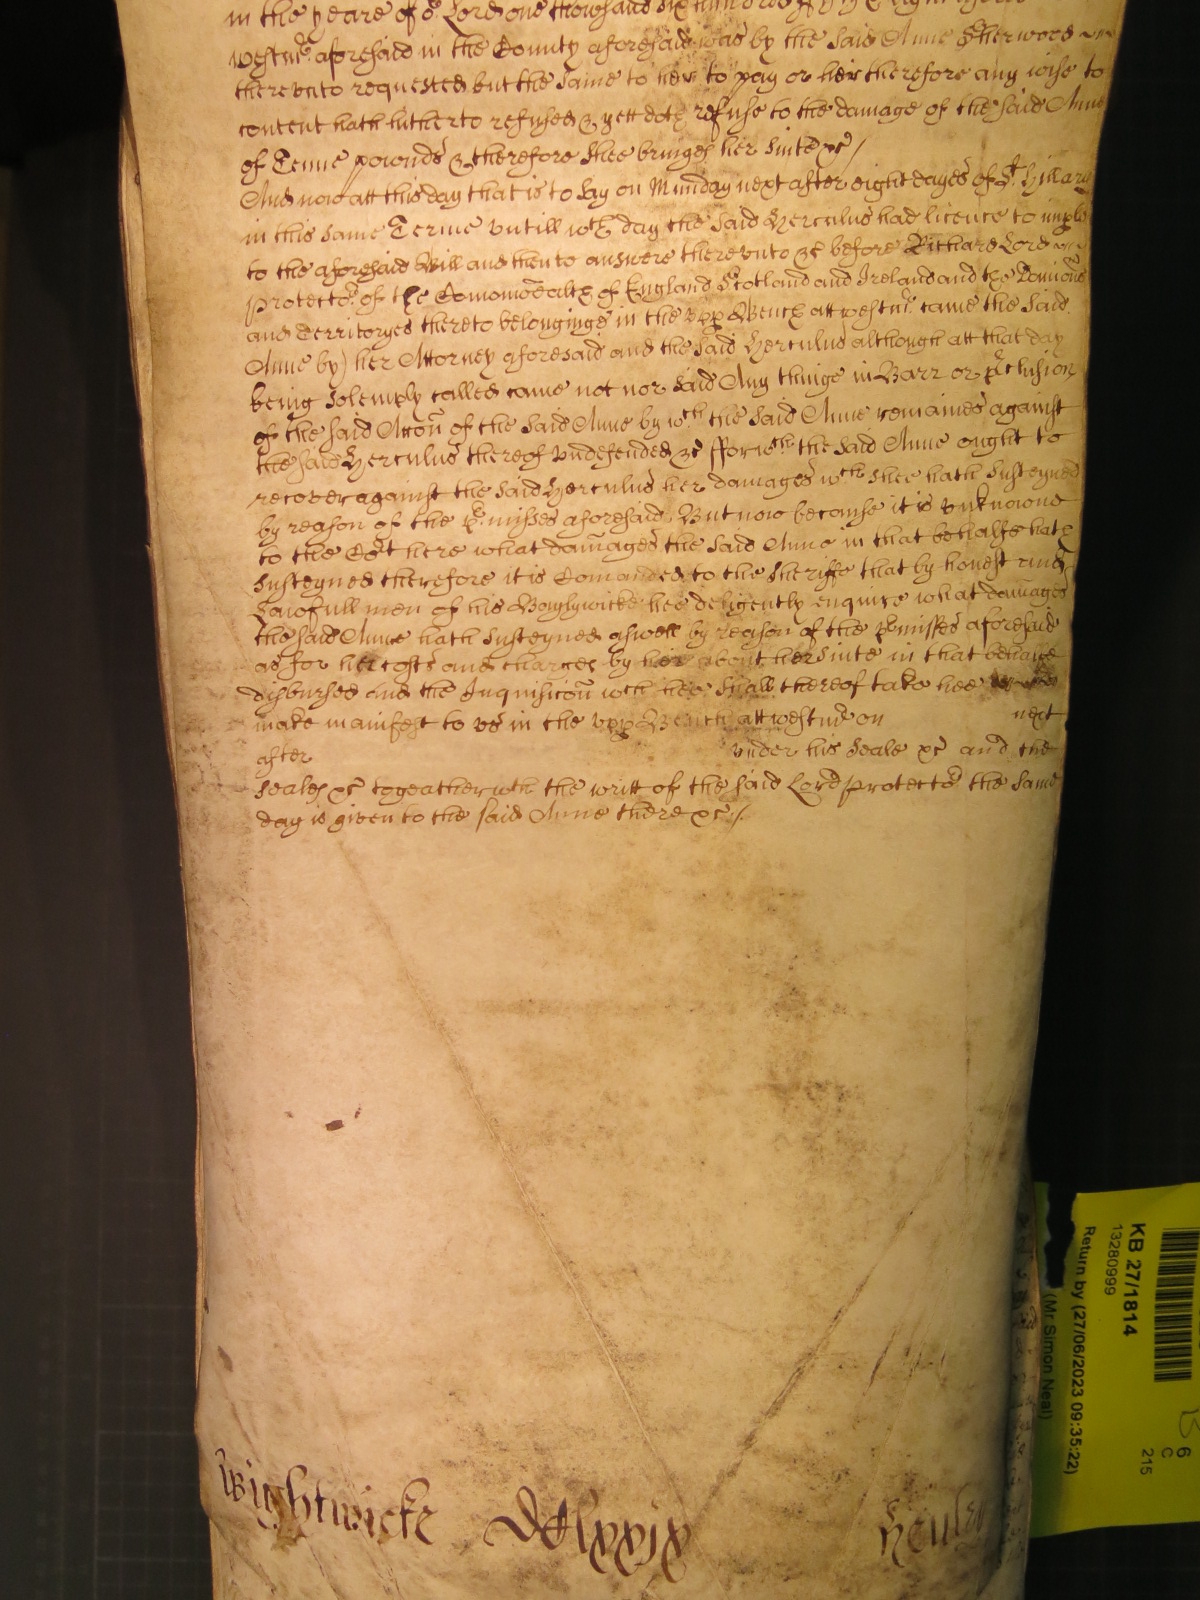 in the yeare of or Lord one thousand six hundred fifty & eight
westmr aforesaid in the County aforesaid was by the said Anne Sherwood
thereunto requested but the same to her to pay or her therefore any wise to
content hath hitherto refused & yett doth refuse to the damage of the said Anne
of Tenne pownds & therefore shee bringes her suite &c /
And now att this day that is to say on Munday next after eight dayes of St Hillary
in this same Terme untill wch day the said Herculus had licence to imple
to the aforesaid Bill and then to answere thereunto &c before Richard Lord
Protector of the Comonwealth of England Scotland and Ireland and the Dominions
and Territoryes thereto belonginge in the upp Bench att westmr came the said
Anne by her Attorney aforesaid and the said Herculus although att that day
being solemply called came not nor said Any thinge in Barr or pclusion
of the said Accon of the said Anne by wch the said Anne remaines against
the said Herculus thereof undefended &c fforwch the said Anne ought to
recover against the said Herculus her damages wch shee hath susteyned
by reason of the pmisses aforesaid But now because it is unknowne
to the Cort here what damages the said Anne in that behalfe hath
susteyned therefore it is Comanded to the Sheriffe that by honest and
Lawfull men of his Baylywicke hee deligently enquire what damages
the said Anne hath susteyned aswell by reason of the pmisses aforesaid
as for her costs and charges by her about her suite in that behalfe
disbursed and the Inquisicon wch hee shall thereof take hee
make manifest to us in the upp Bench att westmr on next
after under his Seale &c and the
Seales &c togeather wth the writt of the said Lord Protector the same
day is given to the said Anne there &c /
Wightwicke DClxxix Henley
KB 27/1814
13280999
Return by (27/06/2023 09:35:22)
(Mr Simon Neal)
6
C
215